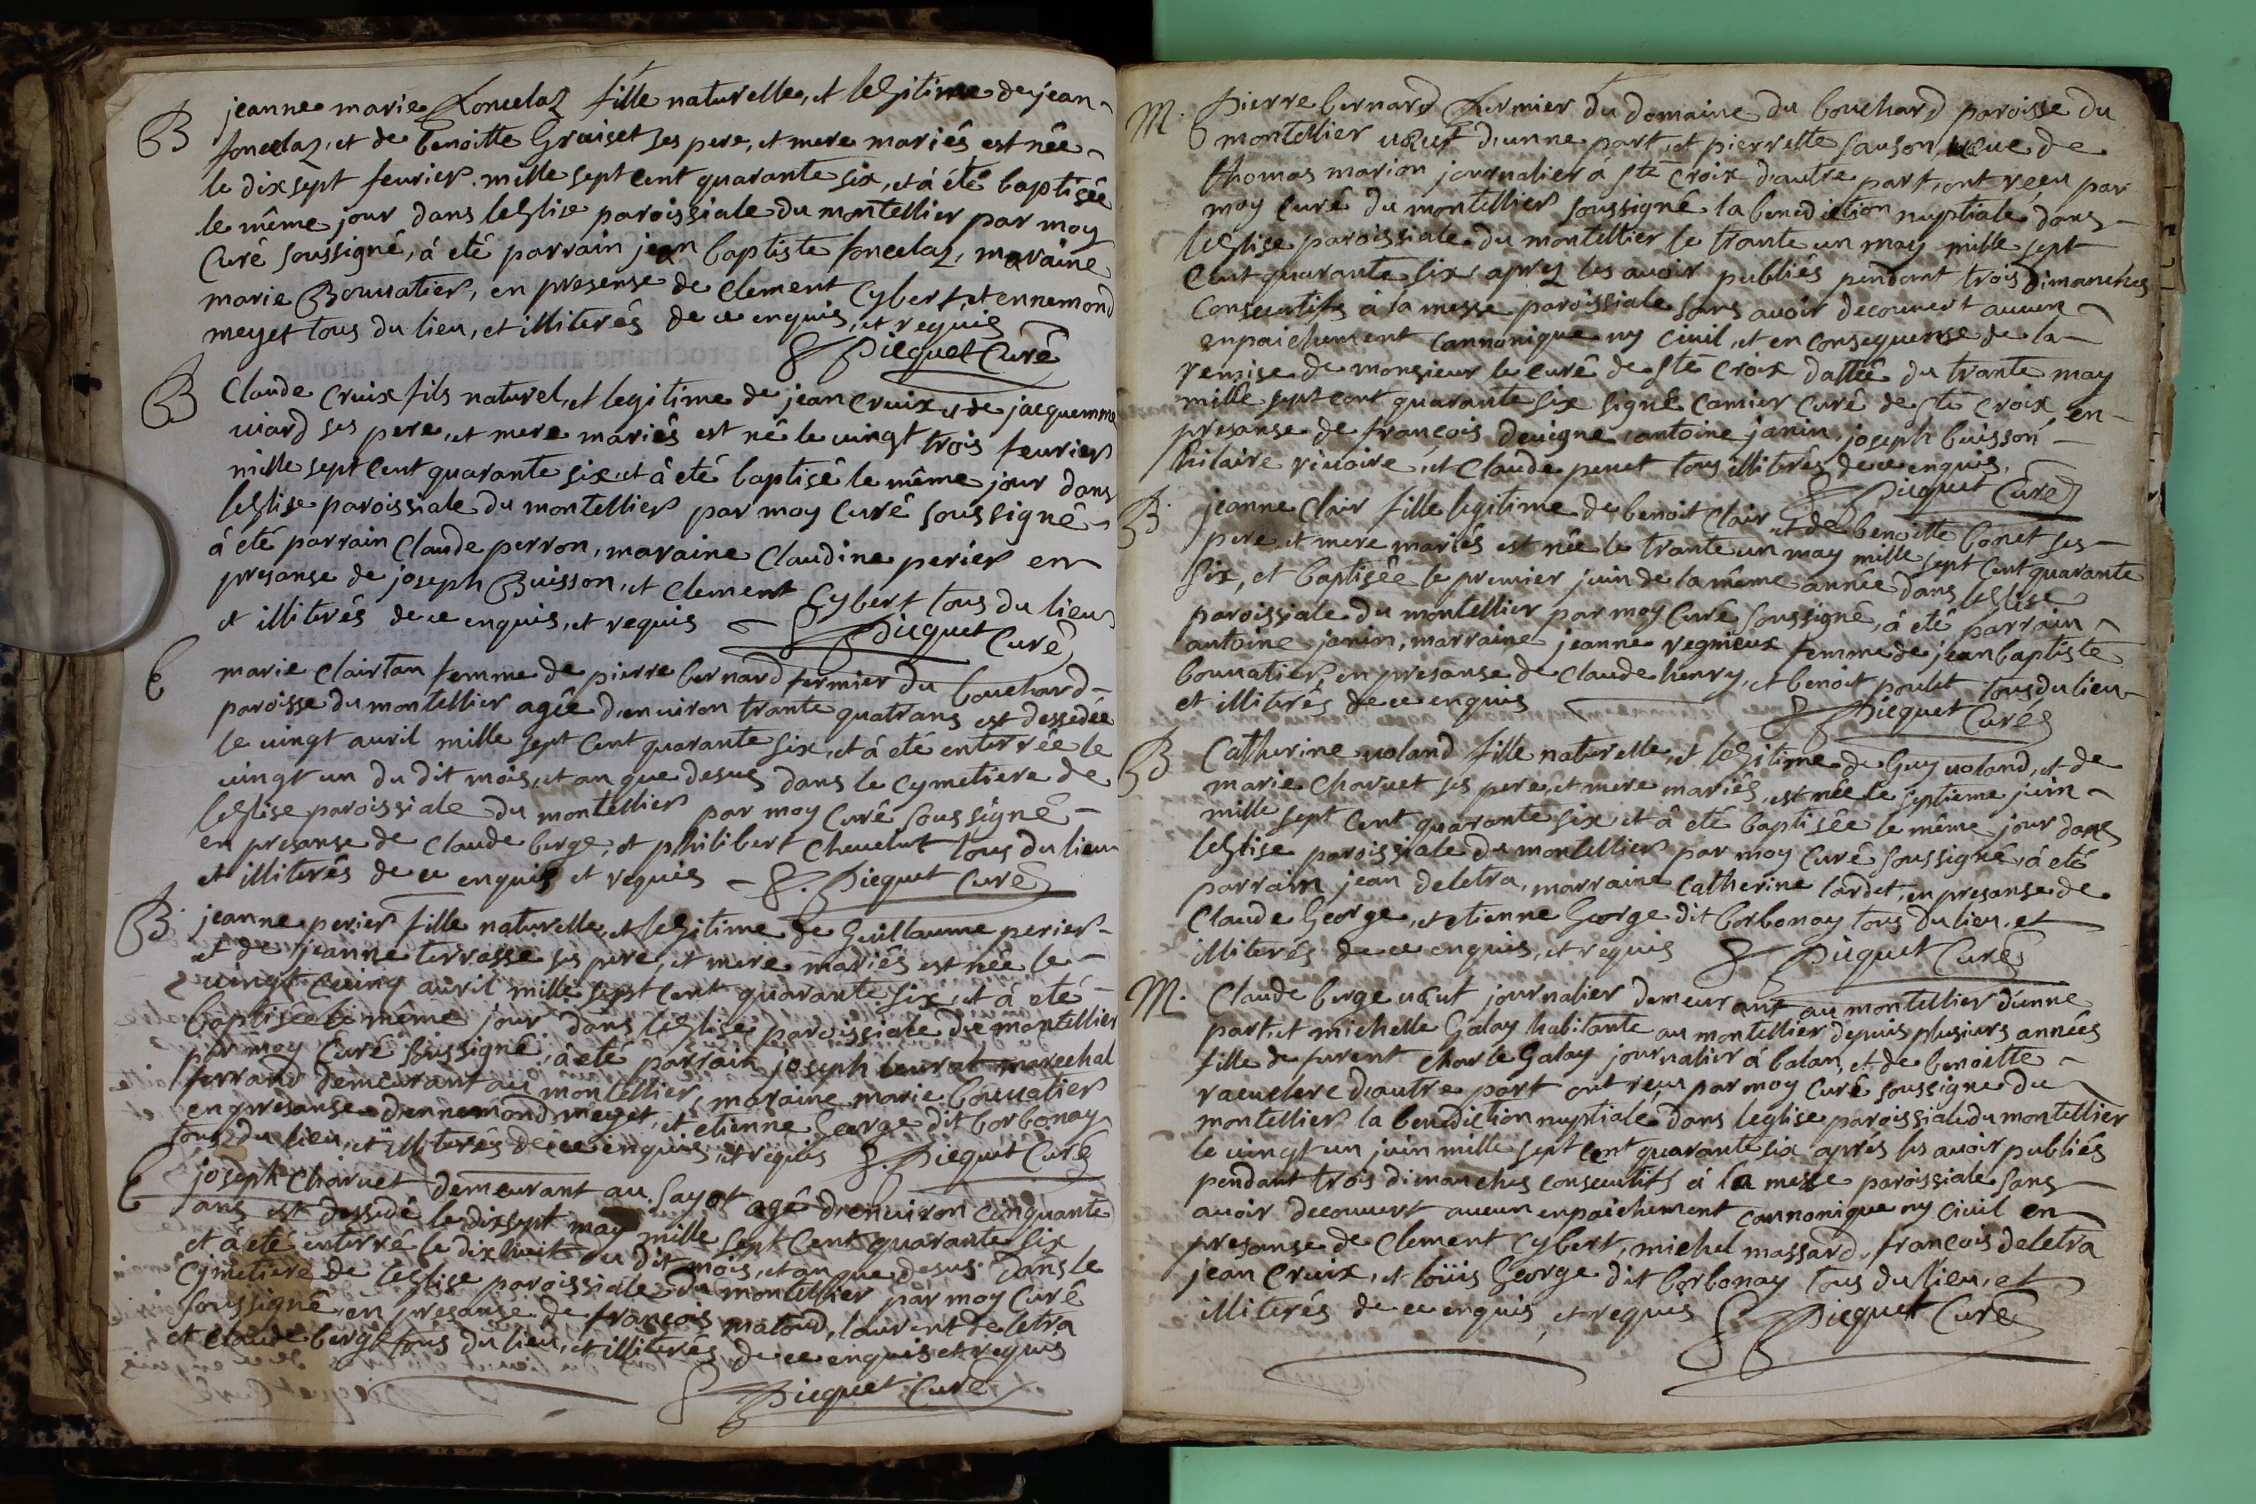 B jeanne marie foncelaz fille naturelle, et legitime de jean
foncelaz, et de benoitte Graiset ses pere, et mere mariés est née
le dix sept feurier mille sept cent quarante six, et à été baptisée
le même jour dans leglise paroissiale du montellier par moy
Curé soussigné, à eté parrain jean baptiste foncelaz, maraine
marie Bouuatier, en presense de Clement Cybert, et ennemond
meyet tous du lieu, et illiterés de ce enquis, et requis
Picquet Curé
B Claude Cruix fils naturel, et legitime de jean Cruix et de jacquemma
uiard ses pere, et mere mariés est né le uingt trois feurier
mille sept cent quarante six et à eté baptisé le même jour dans
leglise paroissiale du montellier par moy Curé soussigné
à eté parrain Claude perron, maraine Claudine perier en
presanse de joseph Buisson, et Clement Cybert tous du lieu
et illiterés de ce enquis, et requis
Picquet Curé
marie Clairtan femme de pierre bernard fermier du bouchard
paroisse du montellier agée d'enuiron trante quatrans est dessedée
le uingt auril mille sept cent quarante six, et à eté enterrée le
uingt un du dit mois, et an que desus dans le Cymetiere de
leglise paroissiale du montellier par moy Curé soussigné
en presanse de Claude berge, et philibert Cheuelut tous du lieu
et illiterés de ce enquis et requis Picquet Curé
B. jeanne perier fille naturelle, et legitime de Guillaume perier
et de jeanne terrasse ses pere, et mere mariés est née le
uingt cuinq auril mille sept cent quarante six, et à eté
baptisée le même jour dans leglise paroissiale du montellier
par moy Curé soussigné, à eté parrain joseph marechal
ferrand demeurant au montellier, maraine marie bouuatier
en presanse d'ennemond meyet, et etienne George dit borbonay
tous du lieu, et illiterés de ce enquis, et requis Picquet Curé
joseph Charuet demeurant au sayot agé d'enuiron cinquante
ans est dessedé le dixsept may mille sept cent quarante six
et à eté enterré le dix huit du dit mois, et an que desus dans le
Cymetiere de leglise paroissiale du montellier par moy Curé
soussigné, en presanse de françois matoud, laurent deletra
et Claude berge tous du lieu, et illiterés de ce enquis et requis
Picquet Curé
M. Pierre bernard fermier du domaine du bouchard paroisse du
montellier uœuf d'unne part, et pierrette sauson ueuue de
thomas marion journalier à ste Croix d'autre part, ont reçu par
moy Curé du montellier soussigné la benediction nuptiale dans
leglise paroissiale du montellier le trante un may mille sept
cent quarante six aprez les avoir publiés pendant trois dimanches
Consecutifs à la messe paroissiale sans avoir decouuert aucun
enpaichement cannonique ny ciuil, et en consequense de la
remise de monsieur le curé de ste Croix dattée du trante may
mille sept cent quarante six signé Camier Curé de ste Croix en
presanse de françois deuigne, antoine janin, joseph buisson
hilaire riuoire, et Claude penet tous illiterés de ce enquis.
Picquet Curé
B. jeanne Clair fille legitime de benoit Clair et de benoitte bonet ses
pere et mere mariés est née le trante un may mille sept cent quarante
six, et baptisée le premier juin de la même année dans leglise
paroissiale du montellier par moy Curé soussigné, à eté parrain
antoine janin, marraine jeanne regnieux femme de jean baptiste
bouuatier, en presanse de Claude henry, et benoit poulet tous du lieu
et illiterés de ce enquis
Picquet Curé
B Catherine uoland fille naturelle, et legitime de Guy uoland, et de
marie Charuet ses pere, et mere mariés, est née le septieme juin
mille sept cent quarante six, et à eté baptisée le même jour dans
leglise paroissiale du montellier par moy Curé soussigné, à eté
parrain jean deletra, marraine Catherine lardet, en presanse de
Claude George, et etienne George dit borbonay tous du lieu, et
illiterés de ce enquis, et requis Picquet Curé
M. Claude berge uœuf journalier demeurant au montellier d'unne
part, et michelle Galay habitante au montellier depuis plusieurs années
fille de furent Charle Galay journalier à balan, et de benoitte
raeuclere d'autre part ont reçu par moy Curé soussigné du
montellier la benediction nuptiale dans leglise paroissiale du montellier
le uingt un juin mille sept cent quarante six aprés les avoir publiés
pendant trois dimanches consecutifs à la messe paroissiale sans
avoir decouuert aucun enpaichement cannonique ny ciuil en
presanse de Clement Cybert, michel massard, françois deletra
jean Cruix, et loüis George dit borbonay tous du lieu, et
illiterés de ce enquis, et requis Picquet Curé